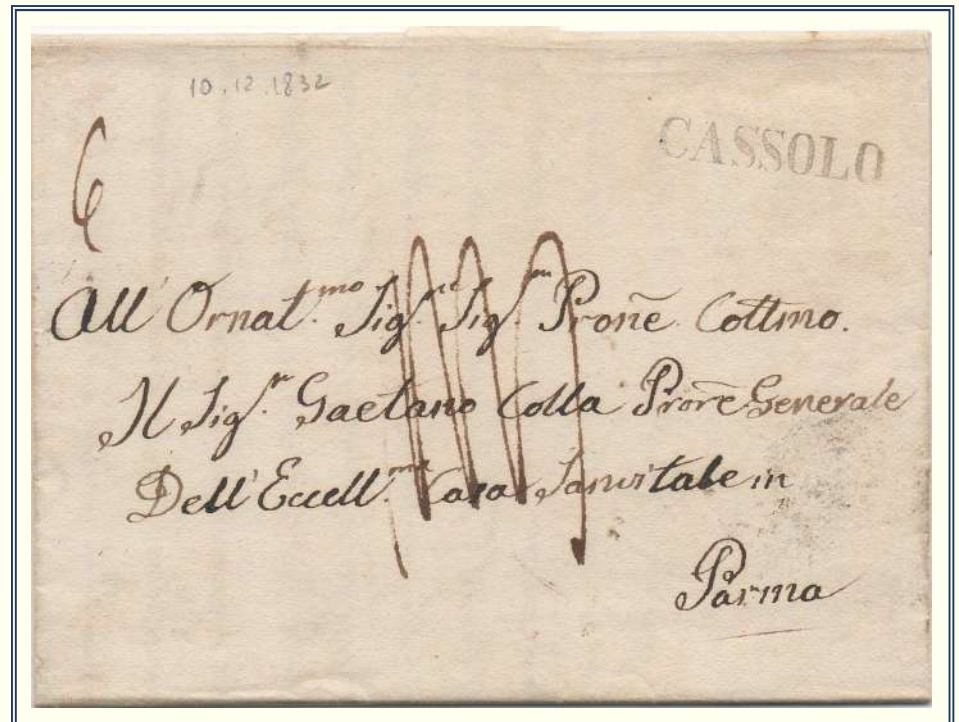 10.12.1832
CASSOLO
6
All' Ornat.mo Sig.r Sig.r Prone Cottmo.
Il Sig.r Gaetano Colla Prore Generale
Dell' Eccell.ma Casa Sanvitale in
Parma